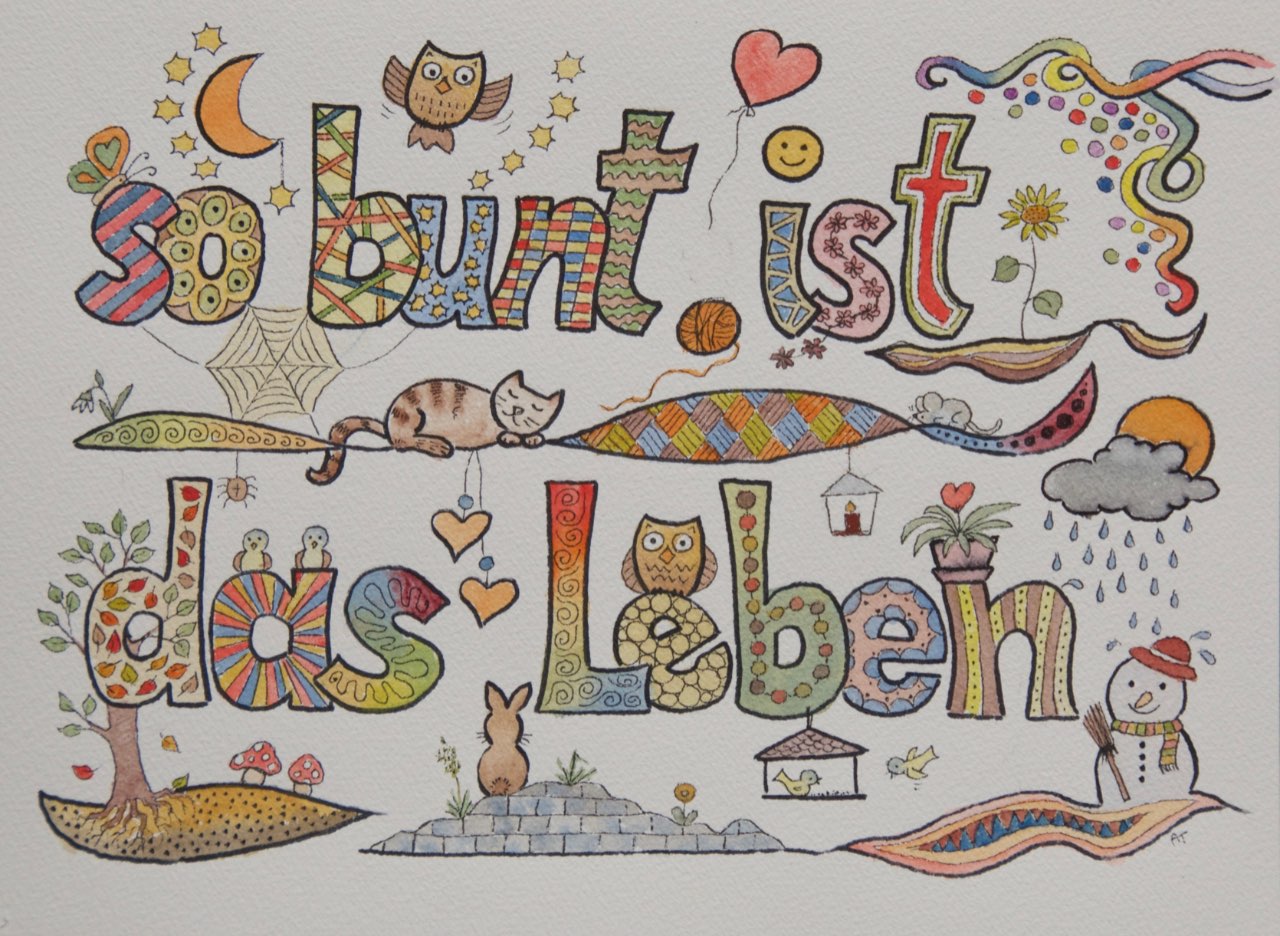 so bunt ist
das Leben
AT